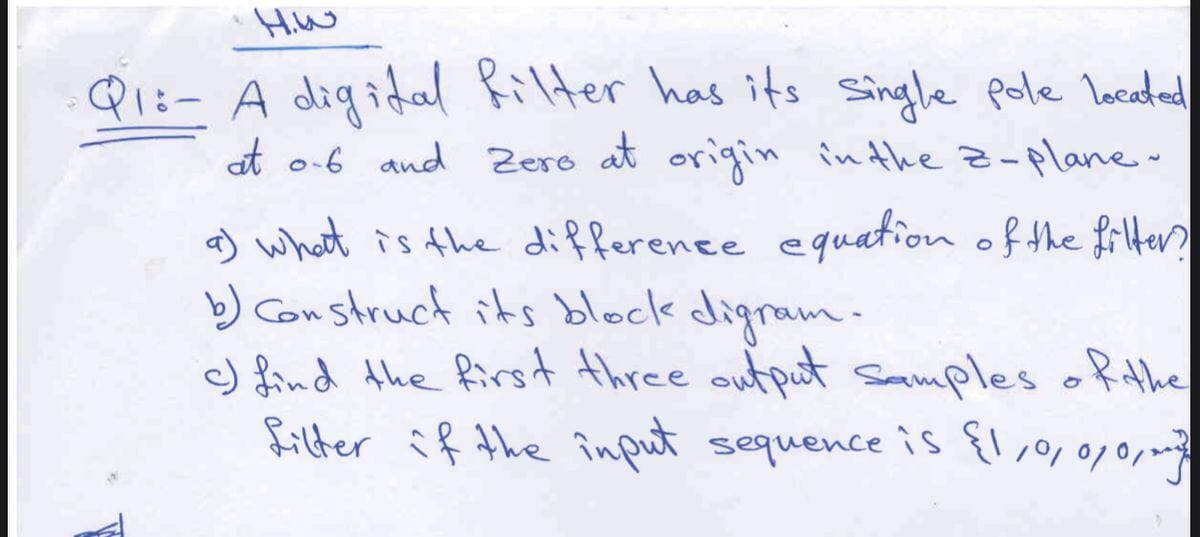 H.W
Q1:- A digital filter has its single pole located
at 0.6 and zero at origin in the z-plane.
a) what is the difference equation of the filter?
b) Construct its block digram.
c) find the first three output samples of the
filter if the input sequence is {1,0,0,0,...}